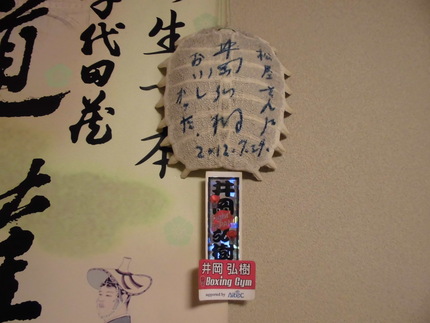 生一本
千代田蔵
道
松屋さん江
井岡弘樹
おいし
かった.
2012.7.29.
井岡弘樹
井岡 弘樹
Boxing Gym
supported by